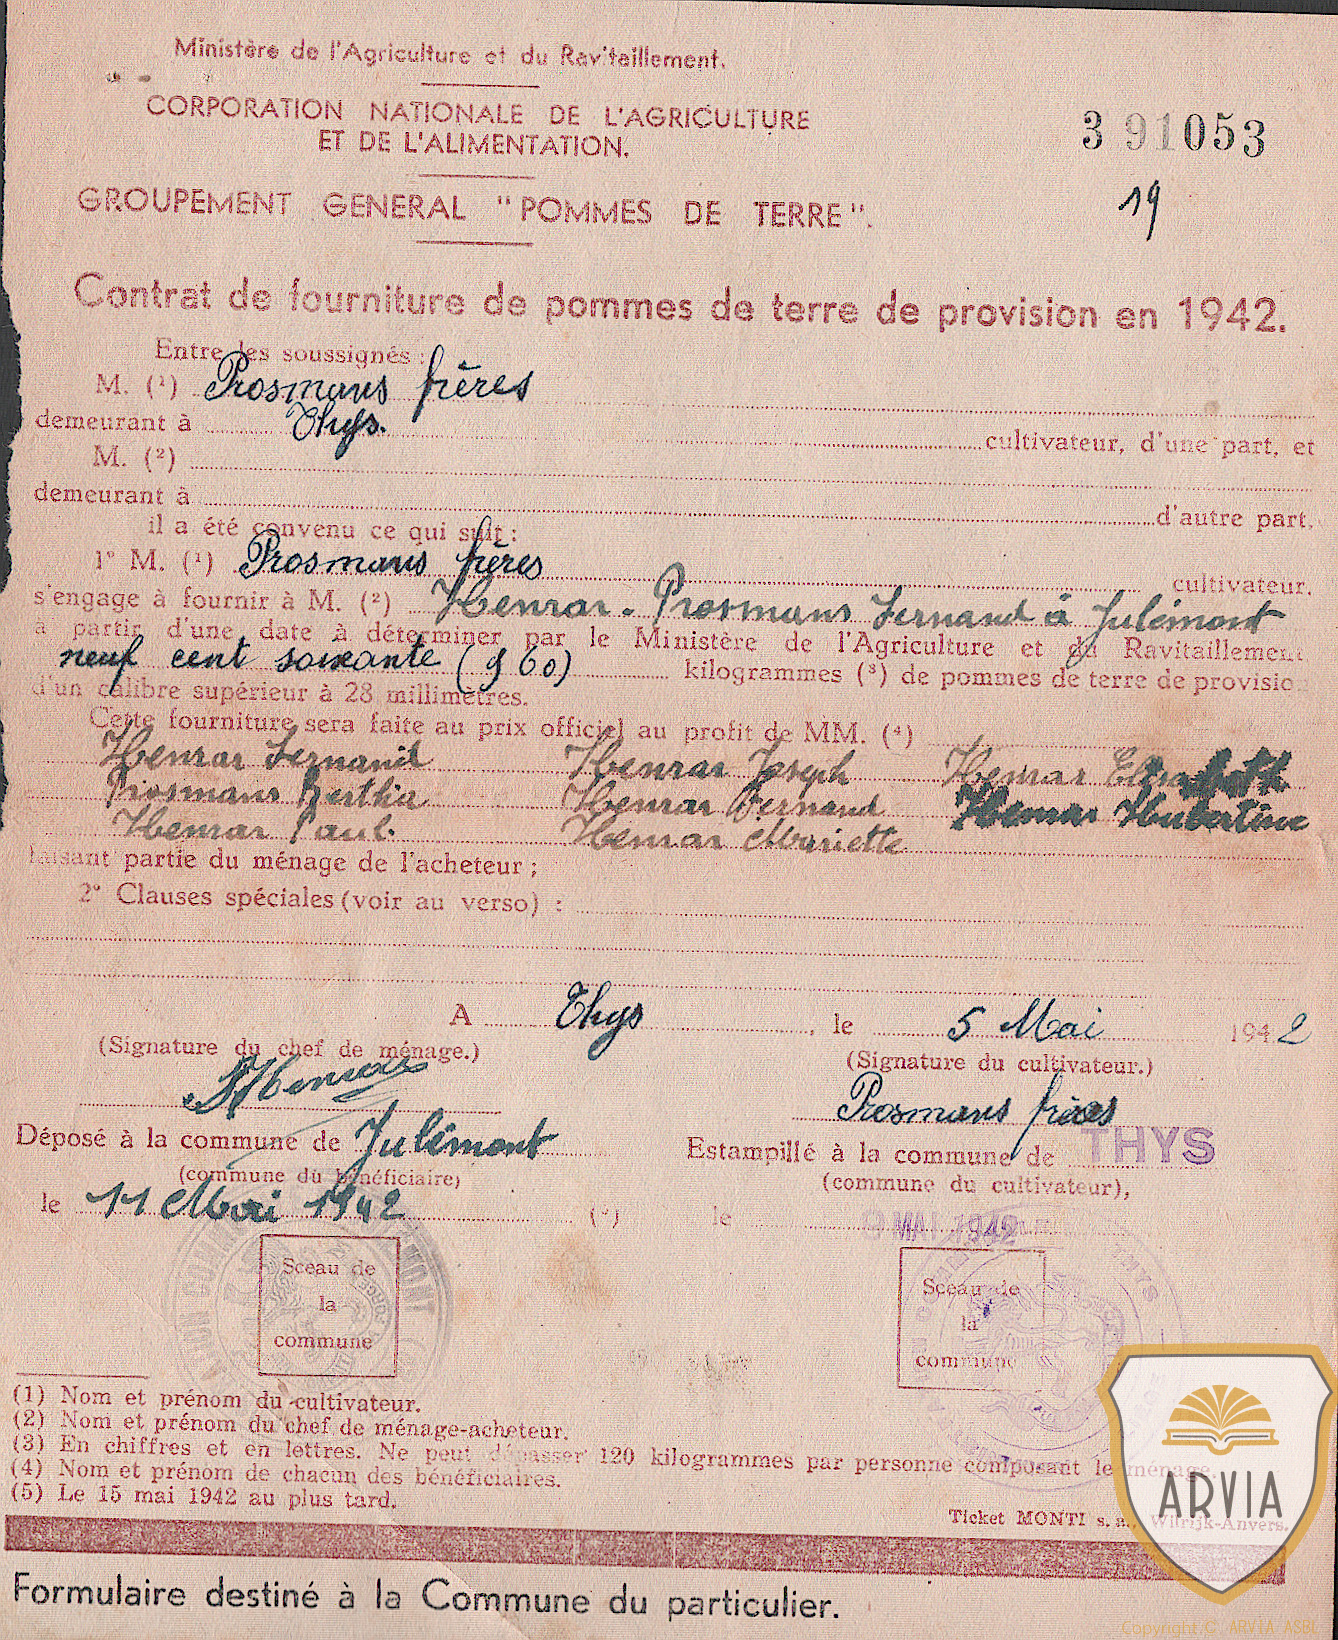 Ministère de l'Agriculture et du Ravitaillement.
CORPORATION NATIONALE DE L'AGRICULTURE
ET DE L'ALIMENTATION.
391053
19
GROUPEMENT GENERAL "POMMES DE TERRE".
Contrat de fourniture de pommes de terre de provision en 1942.
Entre les soussignés :
M. (1) Prosmans frères
demeurant à Thys. cultivateur, d'une part, et
M. (2)
demeurant à d'autre part.
il a été convenu ce qui suit :
1° M. (1) Prosmans frères cultivateur.
s'engage à fournir à M. (2) Henrar - Prosmans Fernand à Julémont
à partir d'une date à déterminer par le Ministère de l'Agriculture et du Ravitaillement
neuf cent soixante (960) kilogrammes (3) de pommes de terre de provision
d'un calibre supérieur à 28 millimètres.
Cette fourniture sera faite au prix officiel au profit de MM. (4)
Henrar Fernand Henrar Joseph Henrar Elisabeth
Prosmans Bertha Henrar Fernand Henrar Hubertine
Henrar Paul. Henrar Mariette
faisant partie du ménage de l'acheteur ;
2° Clauses spéciales (voir au verso) :
A Thys, le 5 Mai 1942
(Signature du chef de ménage.) (Signature du cultivateur.)
Prosmans frères
Déposé à la commune de Julémont Estampillé à la commune de THYS
(commune du bénéficiaire) (commune du cultivateur),
le 11 Mai 1942 (5) le MAI 1942
Sceau de
la
commune
Sceau de
la
commune
(1) Nom et prénom du cultivateur.
(2) Nom et prénom du chef de ménage-acheteur.
(3) En chiffres et en lettres. Ne peut dépasser 120 kilogrammes par personne composant le ménage.
(4) Nom et prénom de chacun des bénéficiaires.
(5) Le 15 mai 1942 au plus tard.
Ticket MONTI s. a., Wilrijk-Anvers.
ARVIA
Formulaire destiné à la Commune du particulier.
Copyright © ARVIA ASBL